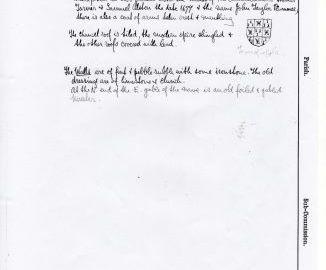 Turner & Samuel Alston the date 1677 & the name John Taylor Runner,
there is also a coat of arms
The chancel roof is tiled, the modern spire shingled &
the other roofs covered with lead.
The Walls are of flint & pebble rubble with some ironstone. The old
dressings are of limestone & clunch.
At the N end of the E. gable of the nave is an old foiled & gabled
Parish.
Sub-Commission.